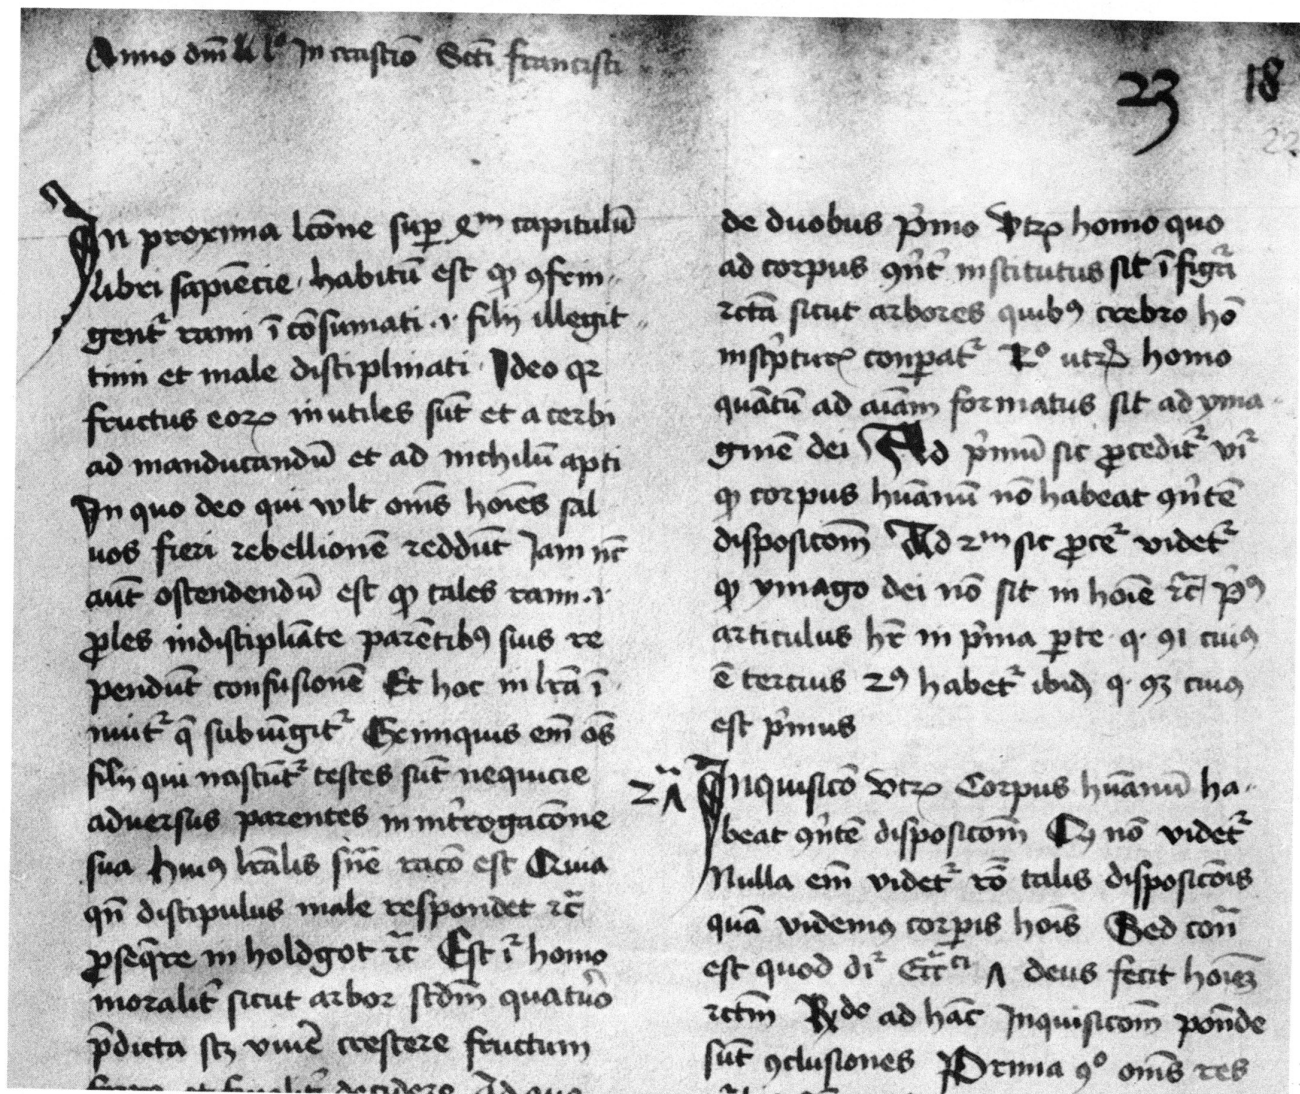 Anno dm̄ lº In crastīo Scti francisci
23 18
22
In proxima lcōne suꝑ 4m capitulū
libri sapiēcie habitū est ꝙ ꝯfrin-
gentr rami īcōsumati ⁊ filij illegit-
timi et male disciplinati Ideo qr
fructus eoꝝ inutiles sūt et acerbi
ad manducandū et ad nichilū apti
In quo deo qui wlt om̄s hoīes sal
uos fieri rebellionē reddūt Jam nc̄
aūt ostendendū est ꝙ tales rami ⁊
ꝓles indisciplīate parētibꝰ suis re
pendūt confusionē Et hoc in lrā ī
nuitr q̄ subiūgitr Ex iniquis em̄ oēs
filij qui nascūtr testes sūt nequicie
adversus parentes in int̄rogacōne
sua Huiꝰ lrālis sn̄ie racō est Quia
qn̄ discipulus male respondet ⁊c̄
ꝓseq̄re in holdgot ⁊c̄ Est ir homo
moralitr sicut arbor scd̄m quatuor
p̄dicta scꝫ viuē̄ crescere fructum
ferre et finalitr decidere Ad quo
de duobus pi̇mo Vtꝝ homo quo
ad corpus ꝯn̄tr institutus sit ī figrā
rctā sicut arbores quibꝰ crebro hō
in sc̄pturis conꝑatr 2º utrū homo
quātū ad aīam formatus sit ad yma-
ginē dei Ad pi̇mū sic ꝓceditr vir
ꝙ corpus hūanū nō habeat ꝯn̄tē
disposicōm Ad 2m sic ꝓcer videtr
ꝙ ymago dei nō sit in hoīe ⁊c̄ pi̇ꝰ
articulus hr̄ in pi̇ma ꝑte q. 91 cuiꝰ
ē tercius 2ꝰ habetr ibidē q. 93 cuiꝰ
est pi̇mus
Inquisicō Vtꝝ Corpus hūanū ha-
beat ꝯn̄tē disposicōm Et nō videtr
Nulla em̄ videtr rō talis disposicōis
quā videmꝰ corꝑis hoīs Sed con̄
est quod dir Ecc̄ci deus fecit hoīeꝫ
rctm̄ Rndº ad hāc Inquisicōm ponēde
sūt ꝯclusiones Prima ꝯº om̄s res